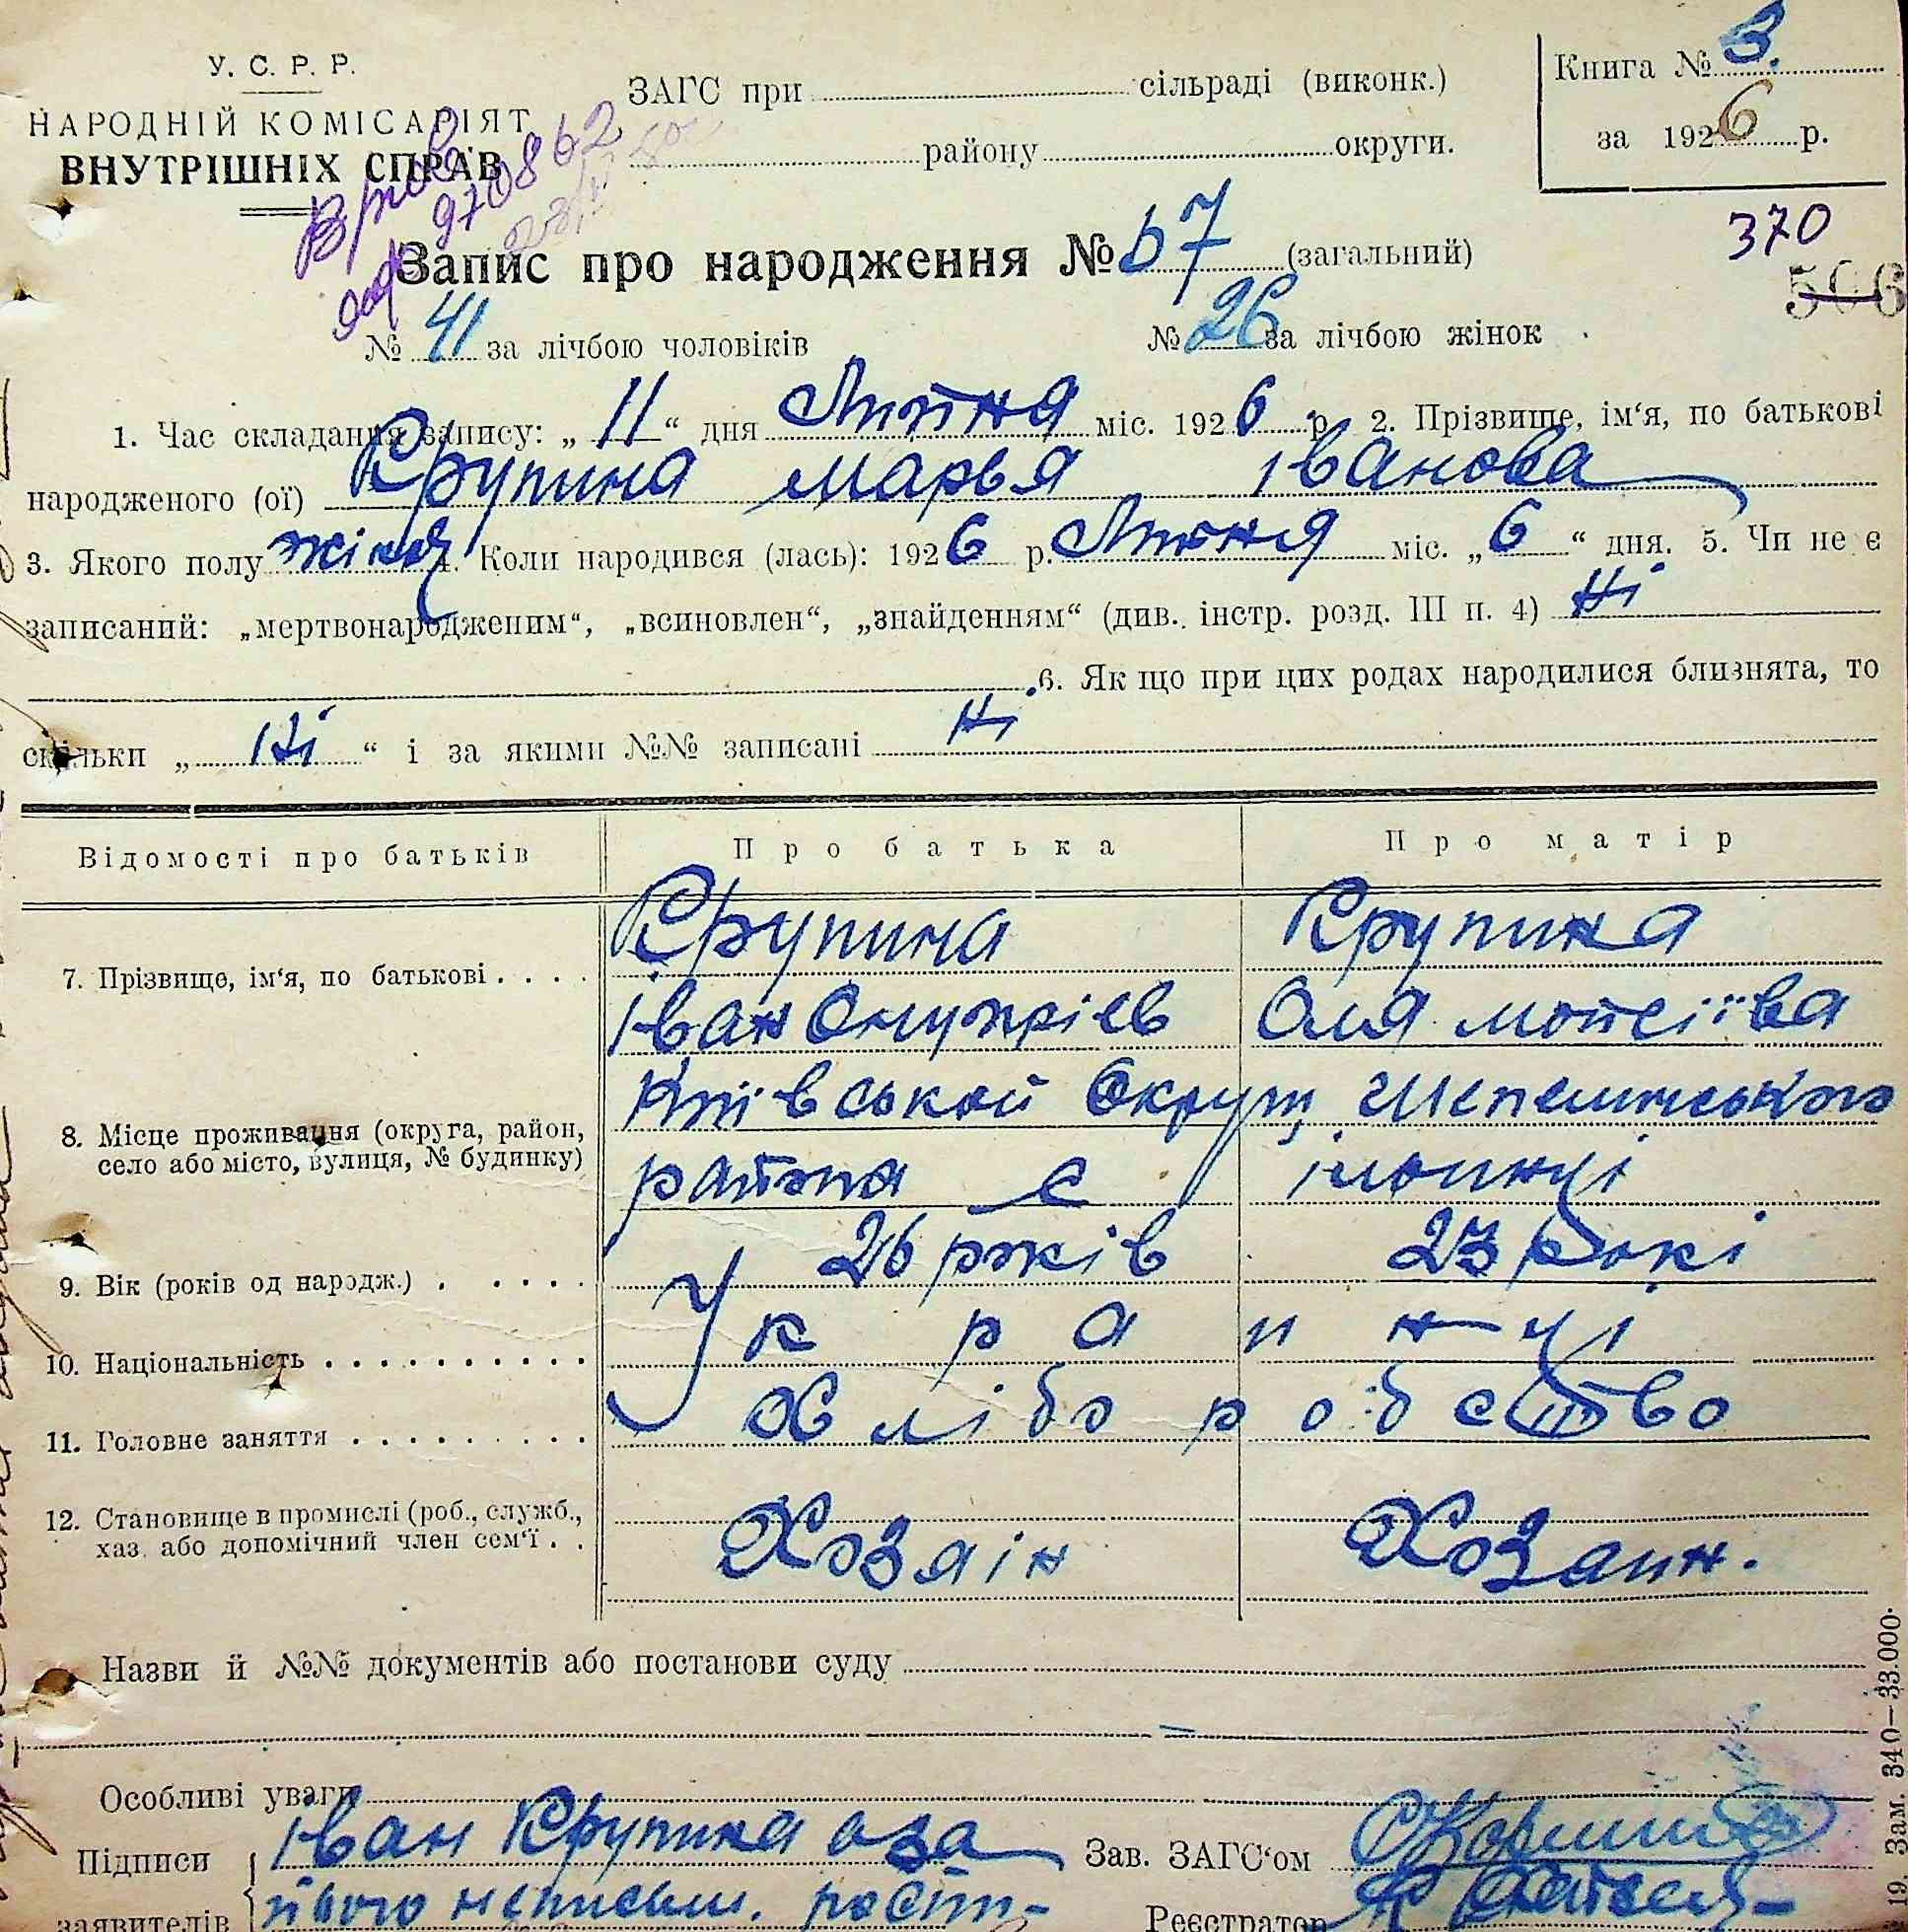 У. С. Р. Р.
НАРОДНІЙ КОМІСАРІЯТ
ВНУТРІШНІХ СПРАВ
ЗАГС при сільраді (виконк.)
району округи.
Книга № 3.
за 1926 р.
970862
370
506
Запис про народження № 67 (загальний)
№ 41 за лічбою чоловіків № 26 за лічбою жінок
1. Час складання запису: „11“ дня Липня міс. 1926 р. 2. Прізвище, ім‘я, по батькові
народженого (ої) Крупина Марья Іванова
3. Якого полу жіноч 4. Коли народився (лась): 1926 р. Липня міс. „6“ дня. 5. Чи не є
записаний: „мертвонародженим“, „всиновлен“, „знайденням“ (див. інстр. розд. III п. 4) Ні
6. Як що при цих родах народилися близнята, то
скільки „ Ні “ і за якими №№ записані Ні
Відомості про батьків Про батька Про матір
7. Прізвище, ім‘я, по батькові Крупина Крупина
Іван Онупріев Оля Мойсіїва
8. Місце проживання (округа, район, село або місто, вулиця, № будинку) Київськой Округи, Шепелицького
района с Ілинці
9. Вік (років од народж.) 26 років 23 рокі
10. Національність Украинці
11. Головне заняття Хліборобство
12. Становище в промислі (роб., служб., хаз. або допомічний член сем‘ї Хозяін Хозаин.
Назви й №№ документів або постанови суду
Особливі уваги
Підписи Іван Крупина а за Зав. ЗАГС‘ом
заявителів його неписьм. розп- Реєстратор
19. Зам. 340—33.000.